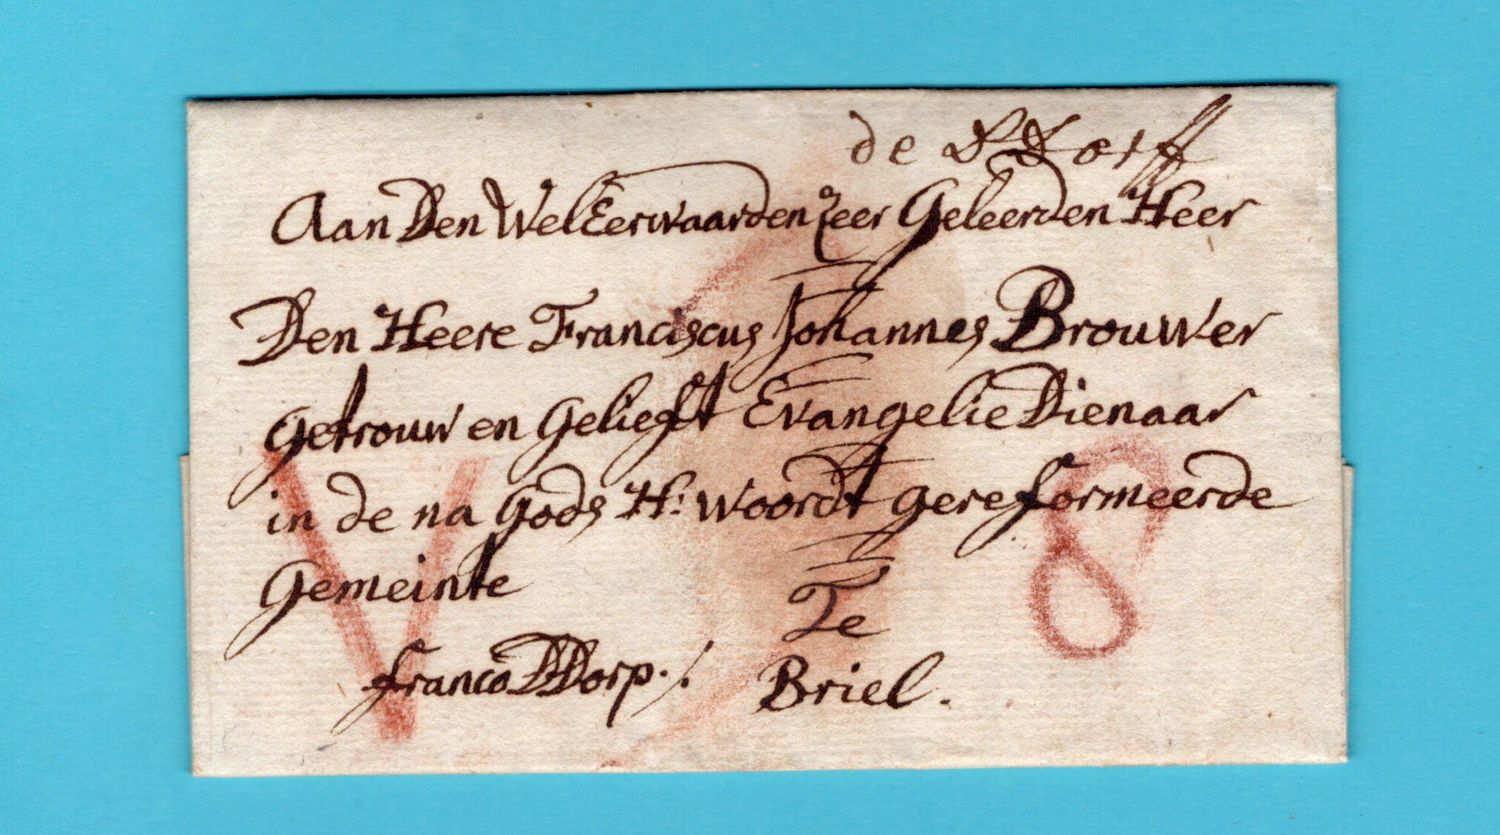 de D Dorff
Aan Den WelEerwaarden zeer Geleerden Heer
Den Heere Franciscus Johannes Brouwer
getrouw en Gelieft Evangelie Dienaar
in de na Gods H: Woordt gereformeerde
Gemeinte
Te
franco DDorp ./.
Briel.
V
8